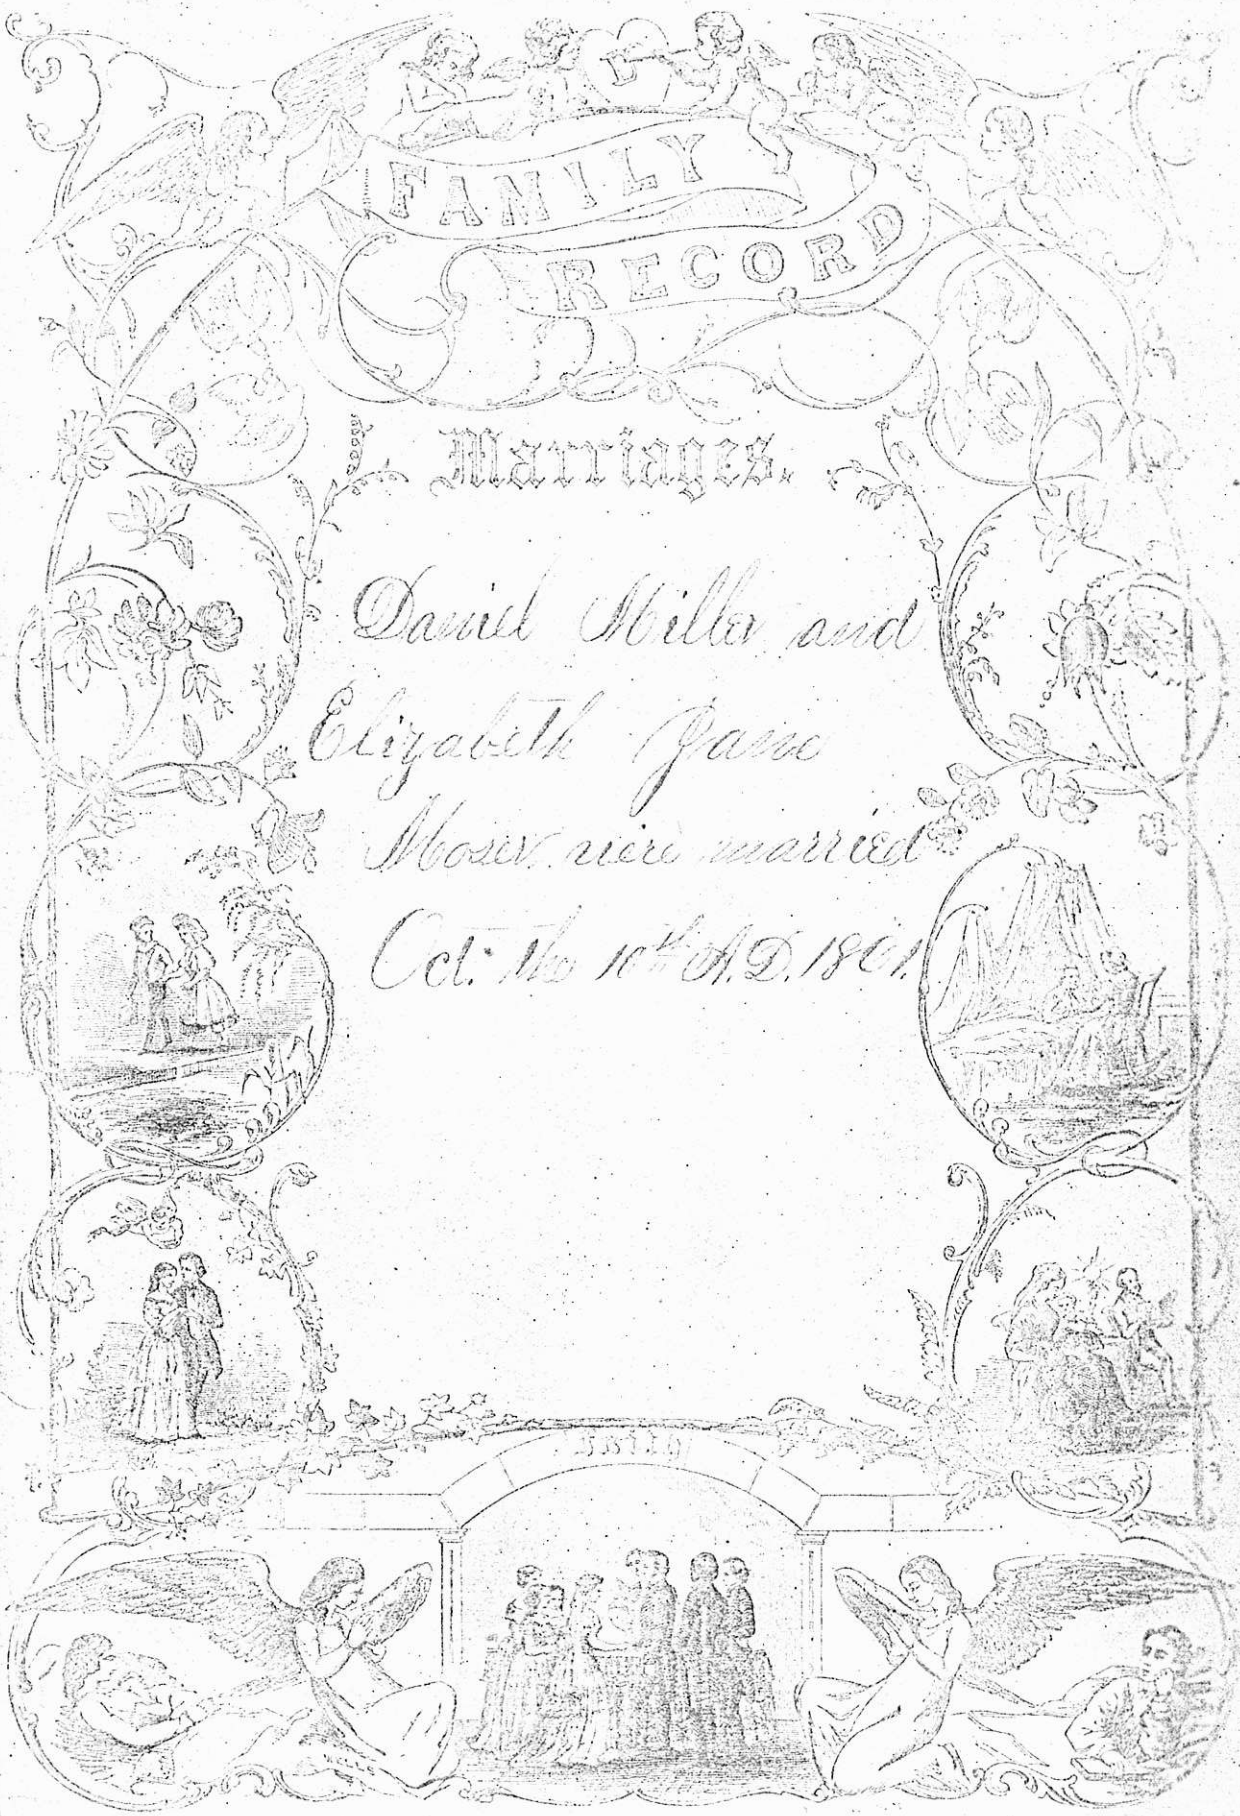 FAMILY
RECORD
Marriages.
Daniel Miller and
Elizabeth Jane
Moser were married
Oct. the 10th A.D. 1861.